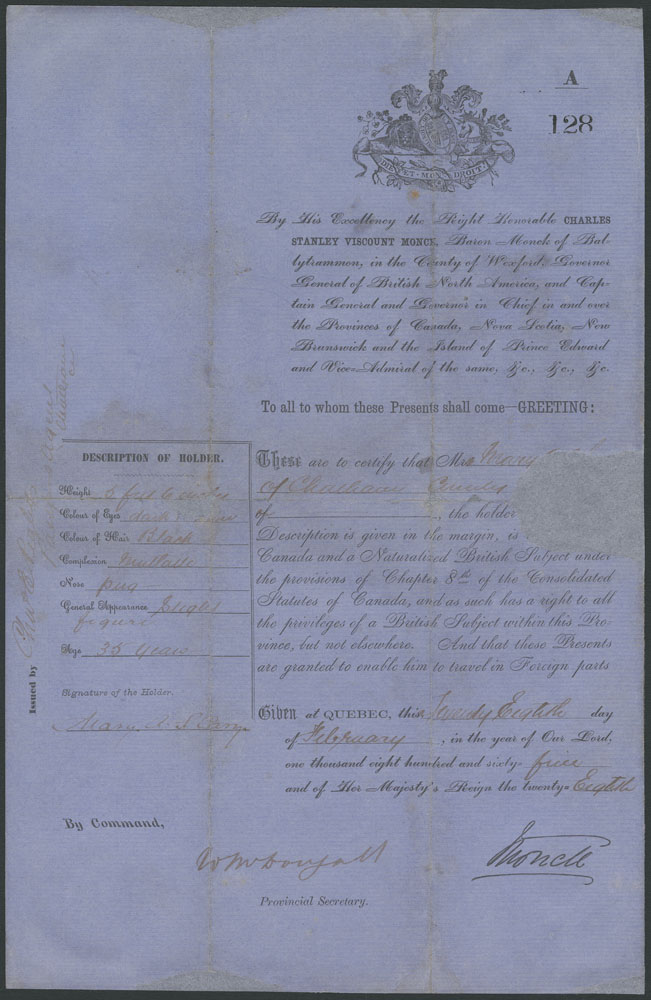 A
128
DIEU ET MON DROIT
By His Excellency the Right Honorable CHARLES
STANLEY VISCOUNT MONCK, Baron Monck of Bal-
lytrammon, in the County of Wexford, Governor
General of British North America, and Cap-
tain General and Governor in Chief in and over
the Provinces of Canada, Nova Scotia, New
Brunswick and the Island of Prince Edward
and Vice-Admiral of the same, &c., &c., &c.
To all to whom these Presents shall come—GREETING:
DESCRIPTION OF HOLDER.
Height 5 feet 6
Colour of Eyes dark
Colour of Hair Black
Complexion Mullatto
Nose pug
General Appearance Slight
figure
Age 35 years
Signature of the Holder.
Mary A. S. Cary
Issued by
These are to certify that Mrs Mary
of Chatham
of , the holder
Description is given in the margin, is
Canada and a Naturalized British Subject under
the provisions of Chapter 8th of the Consolidated
Statutes of Canada, and as such has a right to all
the privileges of a British Subject within this Pro-
vince, but not elsewhere. And that these Presents
are granted to enable him to travel in Foreign parts
Given at QUEBEC, this Twenty Eighth day
of February, in the year of Our Lord,
one thousand eight hundred and sixty- five
and of Her Majesty's Reign the twenty- Eighth
By Command,
Wm McDougall
Monck
Provincial Secretary.